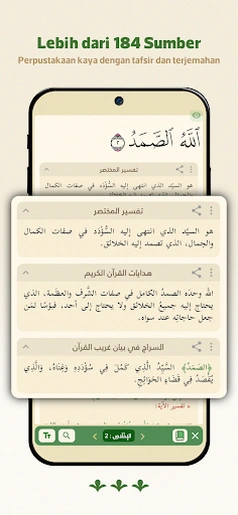 Lebih dari 184 Sumber
Perpustakaan kaya dengan tafsir dan terjemahan
ٱللَّهُ ٱلصَّمَدُ ٢
تفسير المختصر
هو السيّد الذي انتهى إليه السُّؤْدَد في صفات الكمال
تفسير المختصر
هو السيّد الذي انتهى إليه السُّؤْدَد في صفات الكمال
والجمال، الذي تصمد إليه الخلائق.
هدايات القرآن الكريم
الله وحده الصمدُ الكامل في صفات الشَّرف والعظَمة، الذي
يحتاج إليه جميعُ الخلائق ولا يحتاج إلى أحد، فبؤسًا لمَن
جعل حاجاتِه عند سواه.
السراج في بيان غريب القرآن
﴿الصَّمَدُ﴾ السَّيِّدُ الَّذِي كَمُلَ فِي سُؤْدَدِهِ وَغِنَاهُ، وَالَّذِي
يُقْصَدُ فِي قَضَاءِ الحَوَائِجِ.
تفسير الآية:
الإخلاص : 2